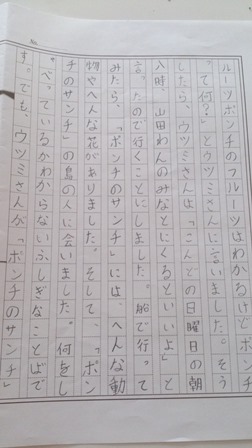 ルーツポンチのフルーツはわかるけどポンチ
って何?」とウツミさんに言いました。そう
したら、ウツミさんは「こんどの日曜日の朝
八時、山田わんのみなとにくるといいよ」と
言ったので行くことにしました。船で行って
みたら、「ポンチのサンチ」には、へんな動
物やへんな花がありました。そして、「ポン
チのサンチ」の島の人に会いました。何をし
ゃべっているかわからないふしぎなことばで
す。でも、ウツミさんが「ポンチのサンチ」